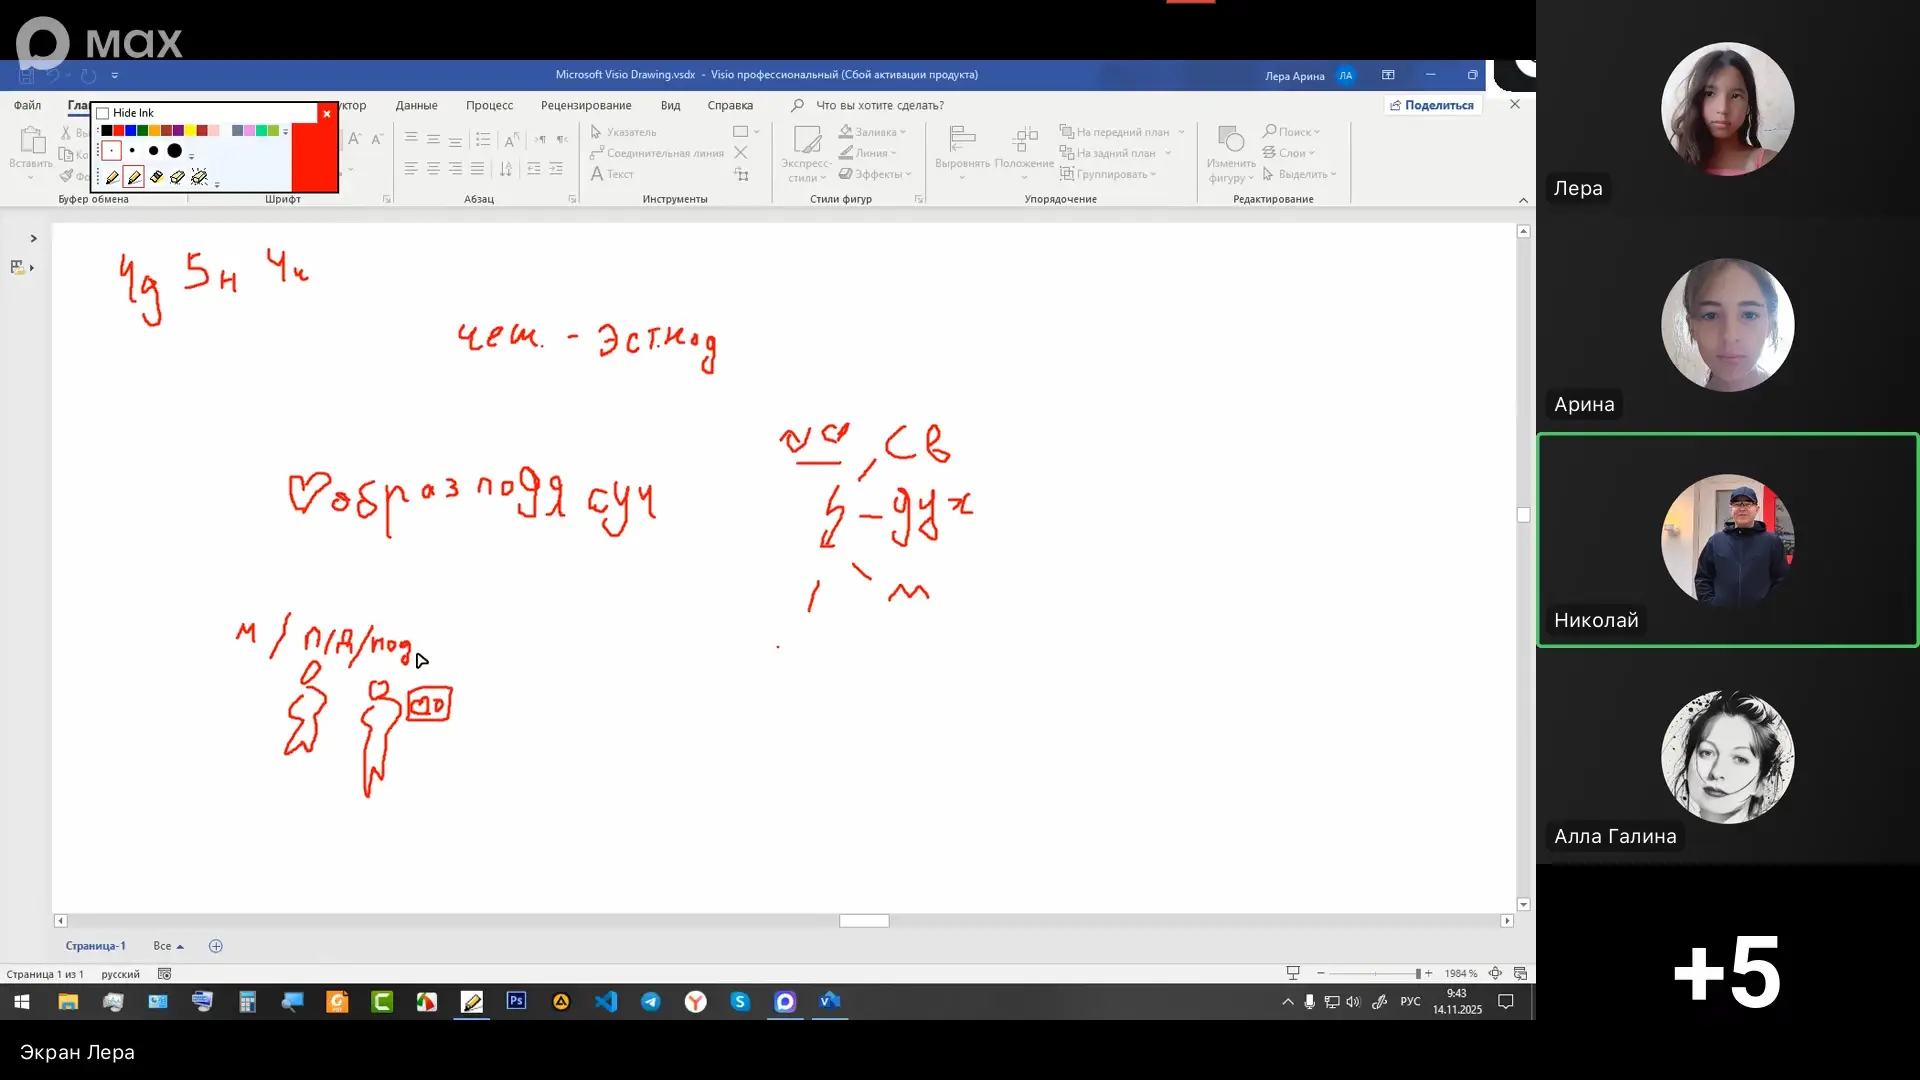 мах
Microsoft Visio Drawing.vsdx - Visio профессиональный (Сбой активации продукта)
Лера Арина
ЛА
Файл
Гла
уктор
Данные
Процесс
Рецензирование
Вид
Справка
Что вы хотите сделать?
Поделиться
Hide Ink
Вставить
Вы
Ко
Фо
Указатель
Соединительная линия
Текст
Экспресс-
стили
Заливка
Линия
Эффекты
Выровнять
Положение
На передний план
На задний план
Группировать
Изменить
фигуру
Поиск
Слои
Выделить
Буфер обмена
Шрифт
Абзац
Инструменты
Стили фигур
Упорядочение
Редактирование
4д 5н 4ч
чеш. - эст.код
образ подя суч
СВ
- дух
м
м / п/д/под
Страница-1
Все
Страница 1 из 1
русский
1984 %
РУС
9:43
14.11.2025
Экран Лера
Лера
Арина
Николай
Алла Галина
+5